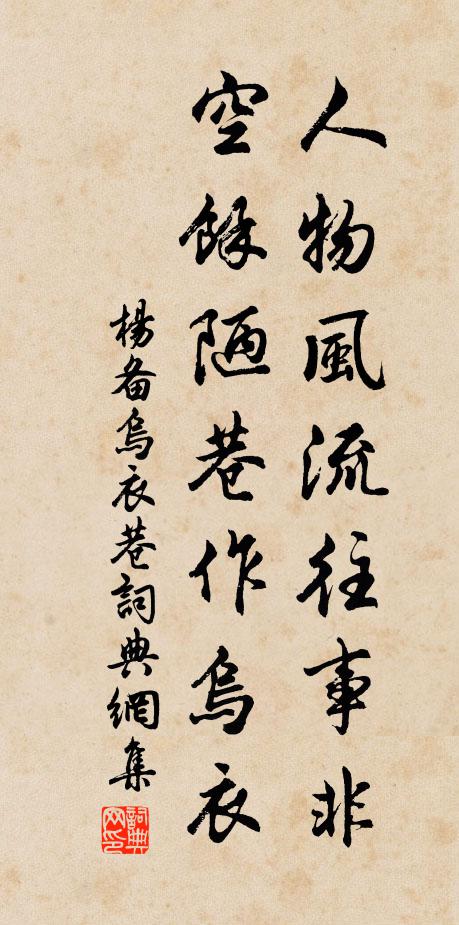 人物風流往事非
空餘陋巷作烏衣
楊备烏衣巷詞典網集
詞典网印